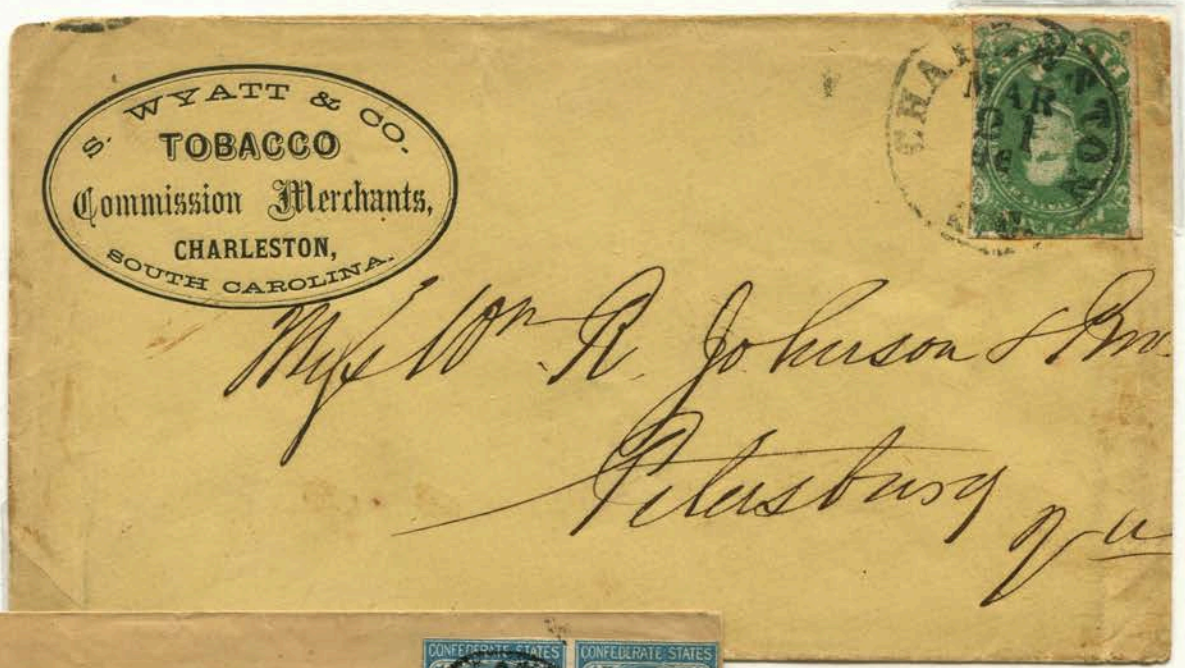 S. WYATT & CO.
TOBACCO
Commission Merchants,
CHARLESTON,
SOUTH CAROLINA.
MAR
1
Wm R. Johnson & Bro.
Petersburg
Va
CONFEDERATE STATES CONFEDERATE STATES